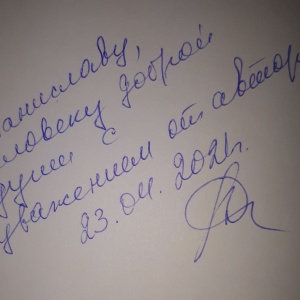 таниславу,
еловеку доброй
души с
уважением от автора
23.04.2021г.